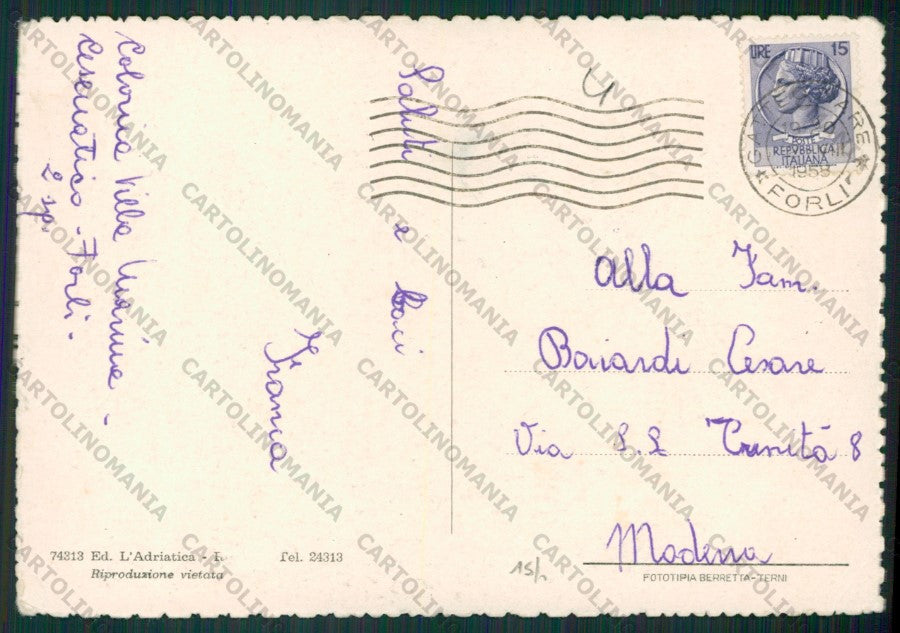 Colonia Villa Marina -
Cesenatico - Forlì -
Saluti e baci
Franca
LIRE 15
POSTE
REPVBBLICA
ITALIANA
1958
* FORLI *
Alla Fam.
Baiardi Cesare
Via S.S. Trinità 8
Modena
74313 Ed. L'Adriatica -
Tel. 24313
Riproduzione vietata
15/
FOTOTIPIA BERRETTA-TERNI
CARTOLINOMANIA